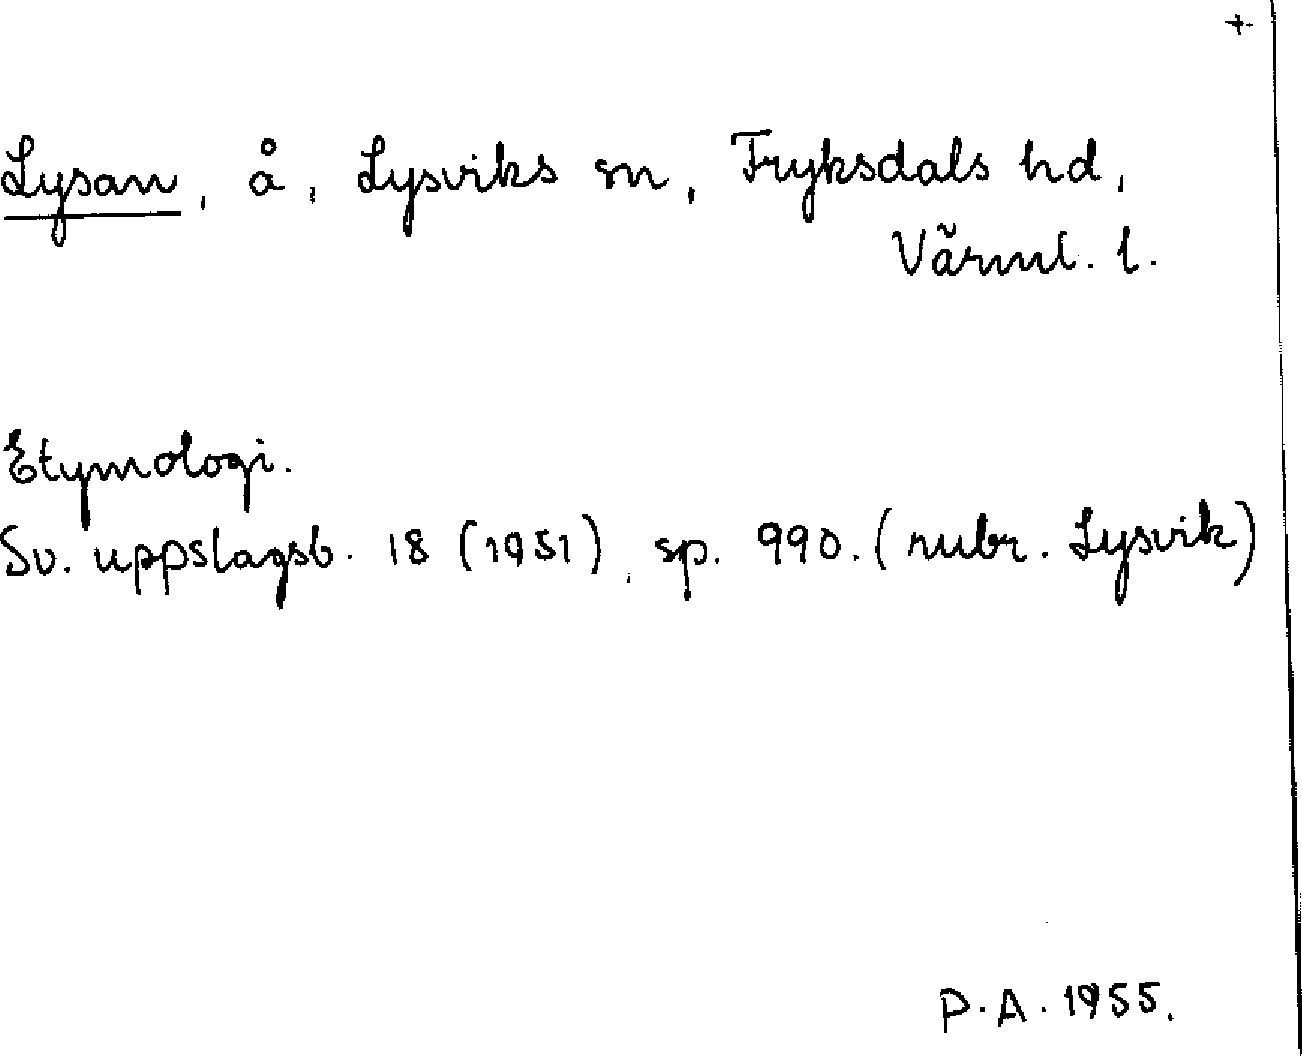 +
Lysan, å, Lysviks sn, Fryksdals hd,
Värml. l.
Etymologi.
Sv. uppslagsb. 18 (1951), sp. 990. (rubr. Lysvik)
P.A. 1955.